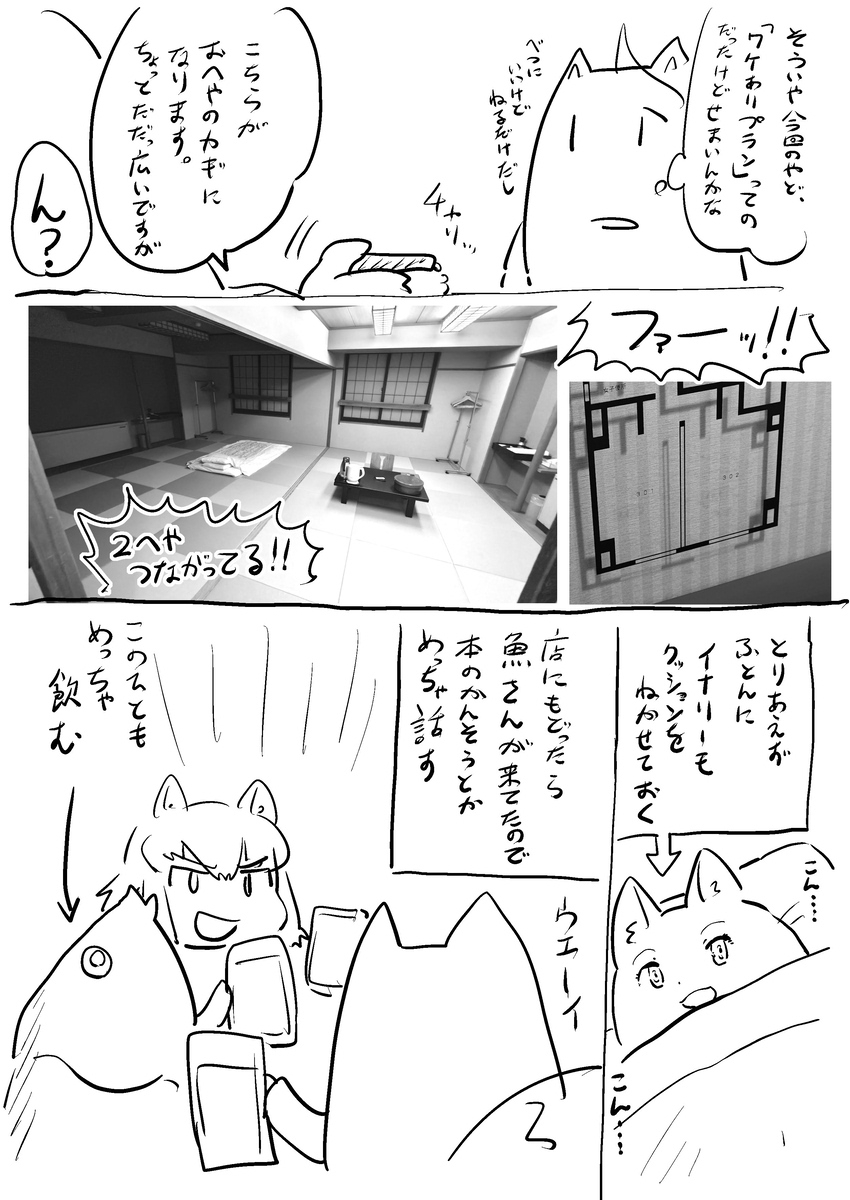 そういや今回のやど、
「ワケありプラン」っての
だったけどせまいんかな
べつに
いいけど
ねるだけだし
チャリッ
こちらが
おへやのカギに
なります。
ちょっとだだっ広いですが
ん？
ファーッ!!
2へや
つながってる!!
とりあえず
ふとんに
イナリーモ
クッションを
ねかせておく
こん…
こん…
店にもどったら
魚さんが来てたので
本のかんそうとか
めっちゃ話す
ウエーイ
このひとも
めっちゃ
飲む
ろ